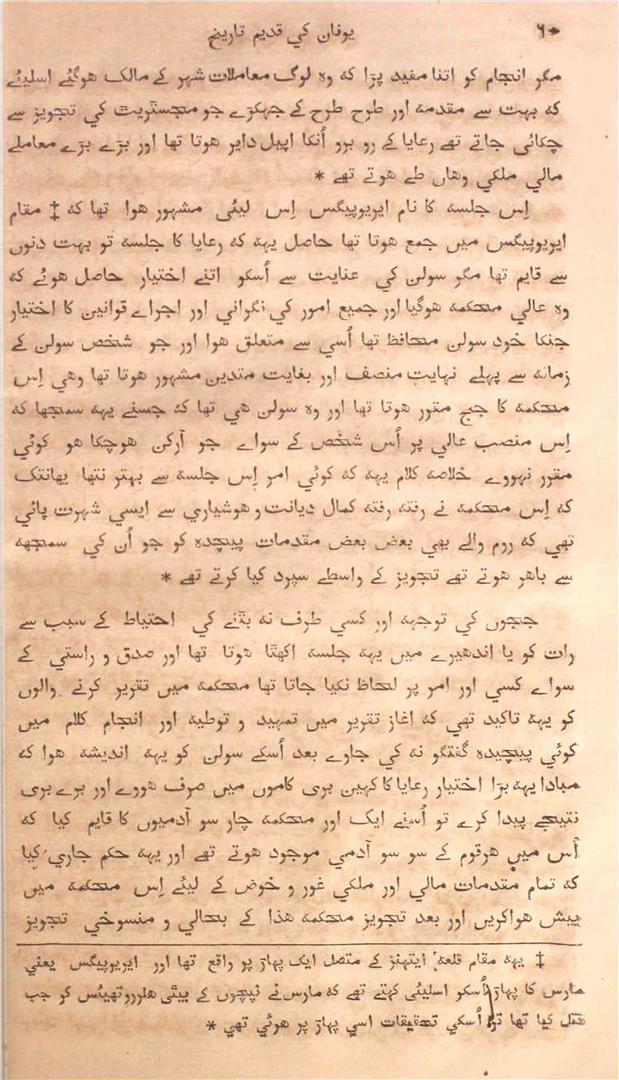 ۶۰
یونان کي قدیم تاریخ
مگر انجام کو اتنا مفید پڑا که وہ لوگ معاملات شہر کے مالک هوگیئے اسلیئے
که بہت سے مقدمه اور طرح طرح کے جھگڑے جو مجسٹریت کي تجویز سے
چکائی جاتے تھے رعایا کے رو برو اُنکا اپیل دایر هوتا تھا اور بڑے بڑے معاملے
مالي ملکي وهاں طے هوتے تھے *
اِس جلسه کا نام ایریوپیگس اِس لیئی مشہور هوا تھا که ‡ مقام
ایریوپیگس میں جمع هوتا تھا حاصل یہه که رعایا کا جلسه تو بہت دنوں
سے قایم تھا مگر سولن کي عنایت سے اُسکو اتنے اختیار حاصل هوئے که
وہ عالي محکمه هوگیا اور جمیع امور کي نگراني اور اجراے قوانین کا اختیار
جنکا خود سولن محافظ تھا اُسي سے متعلق هوا اور جو شخص سولن کے
زمانه سے پہلے نہایت منصف اور بغایت متدین مشہور هوتا تھا وهي اِس
محکمه کا جج مقرر هوتا تھا اور وہ سولن هي تھا که جسنے یہه سمجھا که
اِس منصب عالي پر اُس شخص کے سواے جو آرکن هوچکا هو کوئي
مقرر نہووے خلاصه کلام یہه که کوئي امر اِس جلسه سے بہتر نتھا یہانتک
که اِس محکمه نے رفته رفته کمال دیانت و هوشیاري سے ایسي شہرت پائي
تھي که روم والے بھي بعض بعض مقدمات پیچده کو جو اُن کي سمجھه
سے باهر هوتے تھے تجویز کے واسطے سپرد کیا کرتے تھے *
ججوں کي توجہه اور کسي طرف نه بٹنے کي احتیاط کے سبب سے
رات کو یا اندھیرے میں یہه جلسه اکھٹا هوتا تھا اور صدق و راستي کے
سواے کسي اور امر پر لحاظ نکیا جاتا تھا محکمه میں تقریر کرنے والوں
کو یہه تاکید تھي که اغاز تقریر میں تمہید و توطیه اور انجام کلام میں
کوئي پیچیدہ گفتگو نه کي جاوے بعد اُسکے سولن کو یہه اندیشه هوا که
مبادا یہه بڑا اختیار رعایا کا کہیں بری کاموں میں صرف هووے اور برے بری
نتیجے پیدا کرے تو اُسنے ایک اور محکمه چار سو آدمیوں کا قایم کیا که
اُس میں هرقوم کے سو سو آدمي موجود هوتے تھے اور یہه حکم جاري کیا
که تمام مقدمات مالي اور ملکي غور و خوض کے لیئے اِس محکمه میں
پیش هواکریں اور بعد تجویز محکمه هذا کے بحالي و منسوخي تجویز
‡ یہه مقام قلعهٔ ایتھنز کے متصل ایک پہاڑ پر واقع تھا اور ایریوپیگس یعني
مارس کا پہاڑ اُسکو اسلیئی کہتے تھے که مارس نے نیپچوں کے بیٹی کو جب
قتل کیا تھا تو اُسکي تحقیقات اسي پہاڑ پر هوئي تھي *